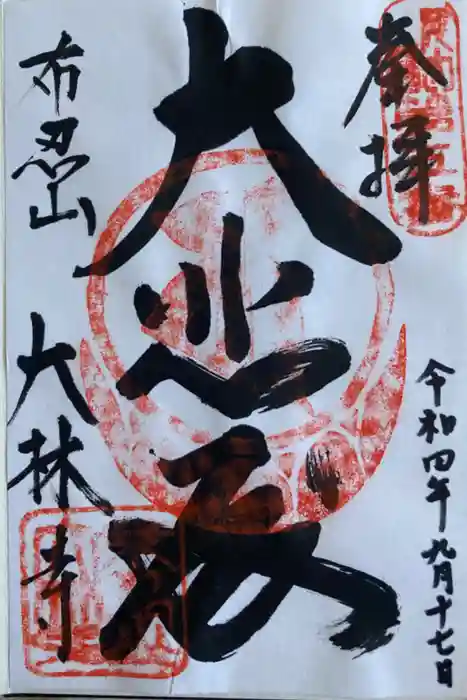 奉拝
令和四年 九月十七日
大悲殿
布忍山 大林寺